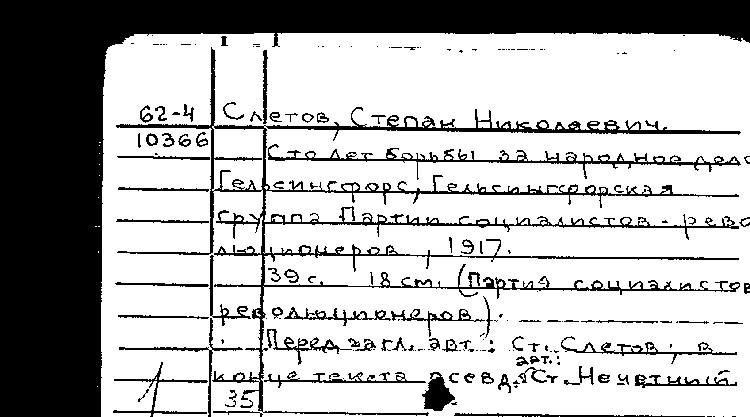 62-4 Слетов, Степан Николаевич.
10366
Сто лет борьбы за народное дело
Гельсингфорс, Гельсингфорская
группа Партии социалистов-рево
люционеров, 1917.
39 с. 18 cm. (Партия социалистов
революционеров).
Перед загл. авт.: Ст. Слетов; в
авт.:
конце текста псевд. Ст. Нечетный
35